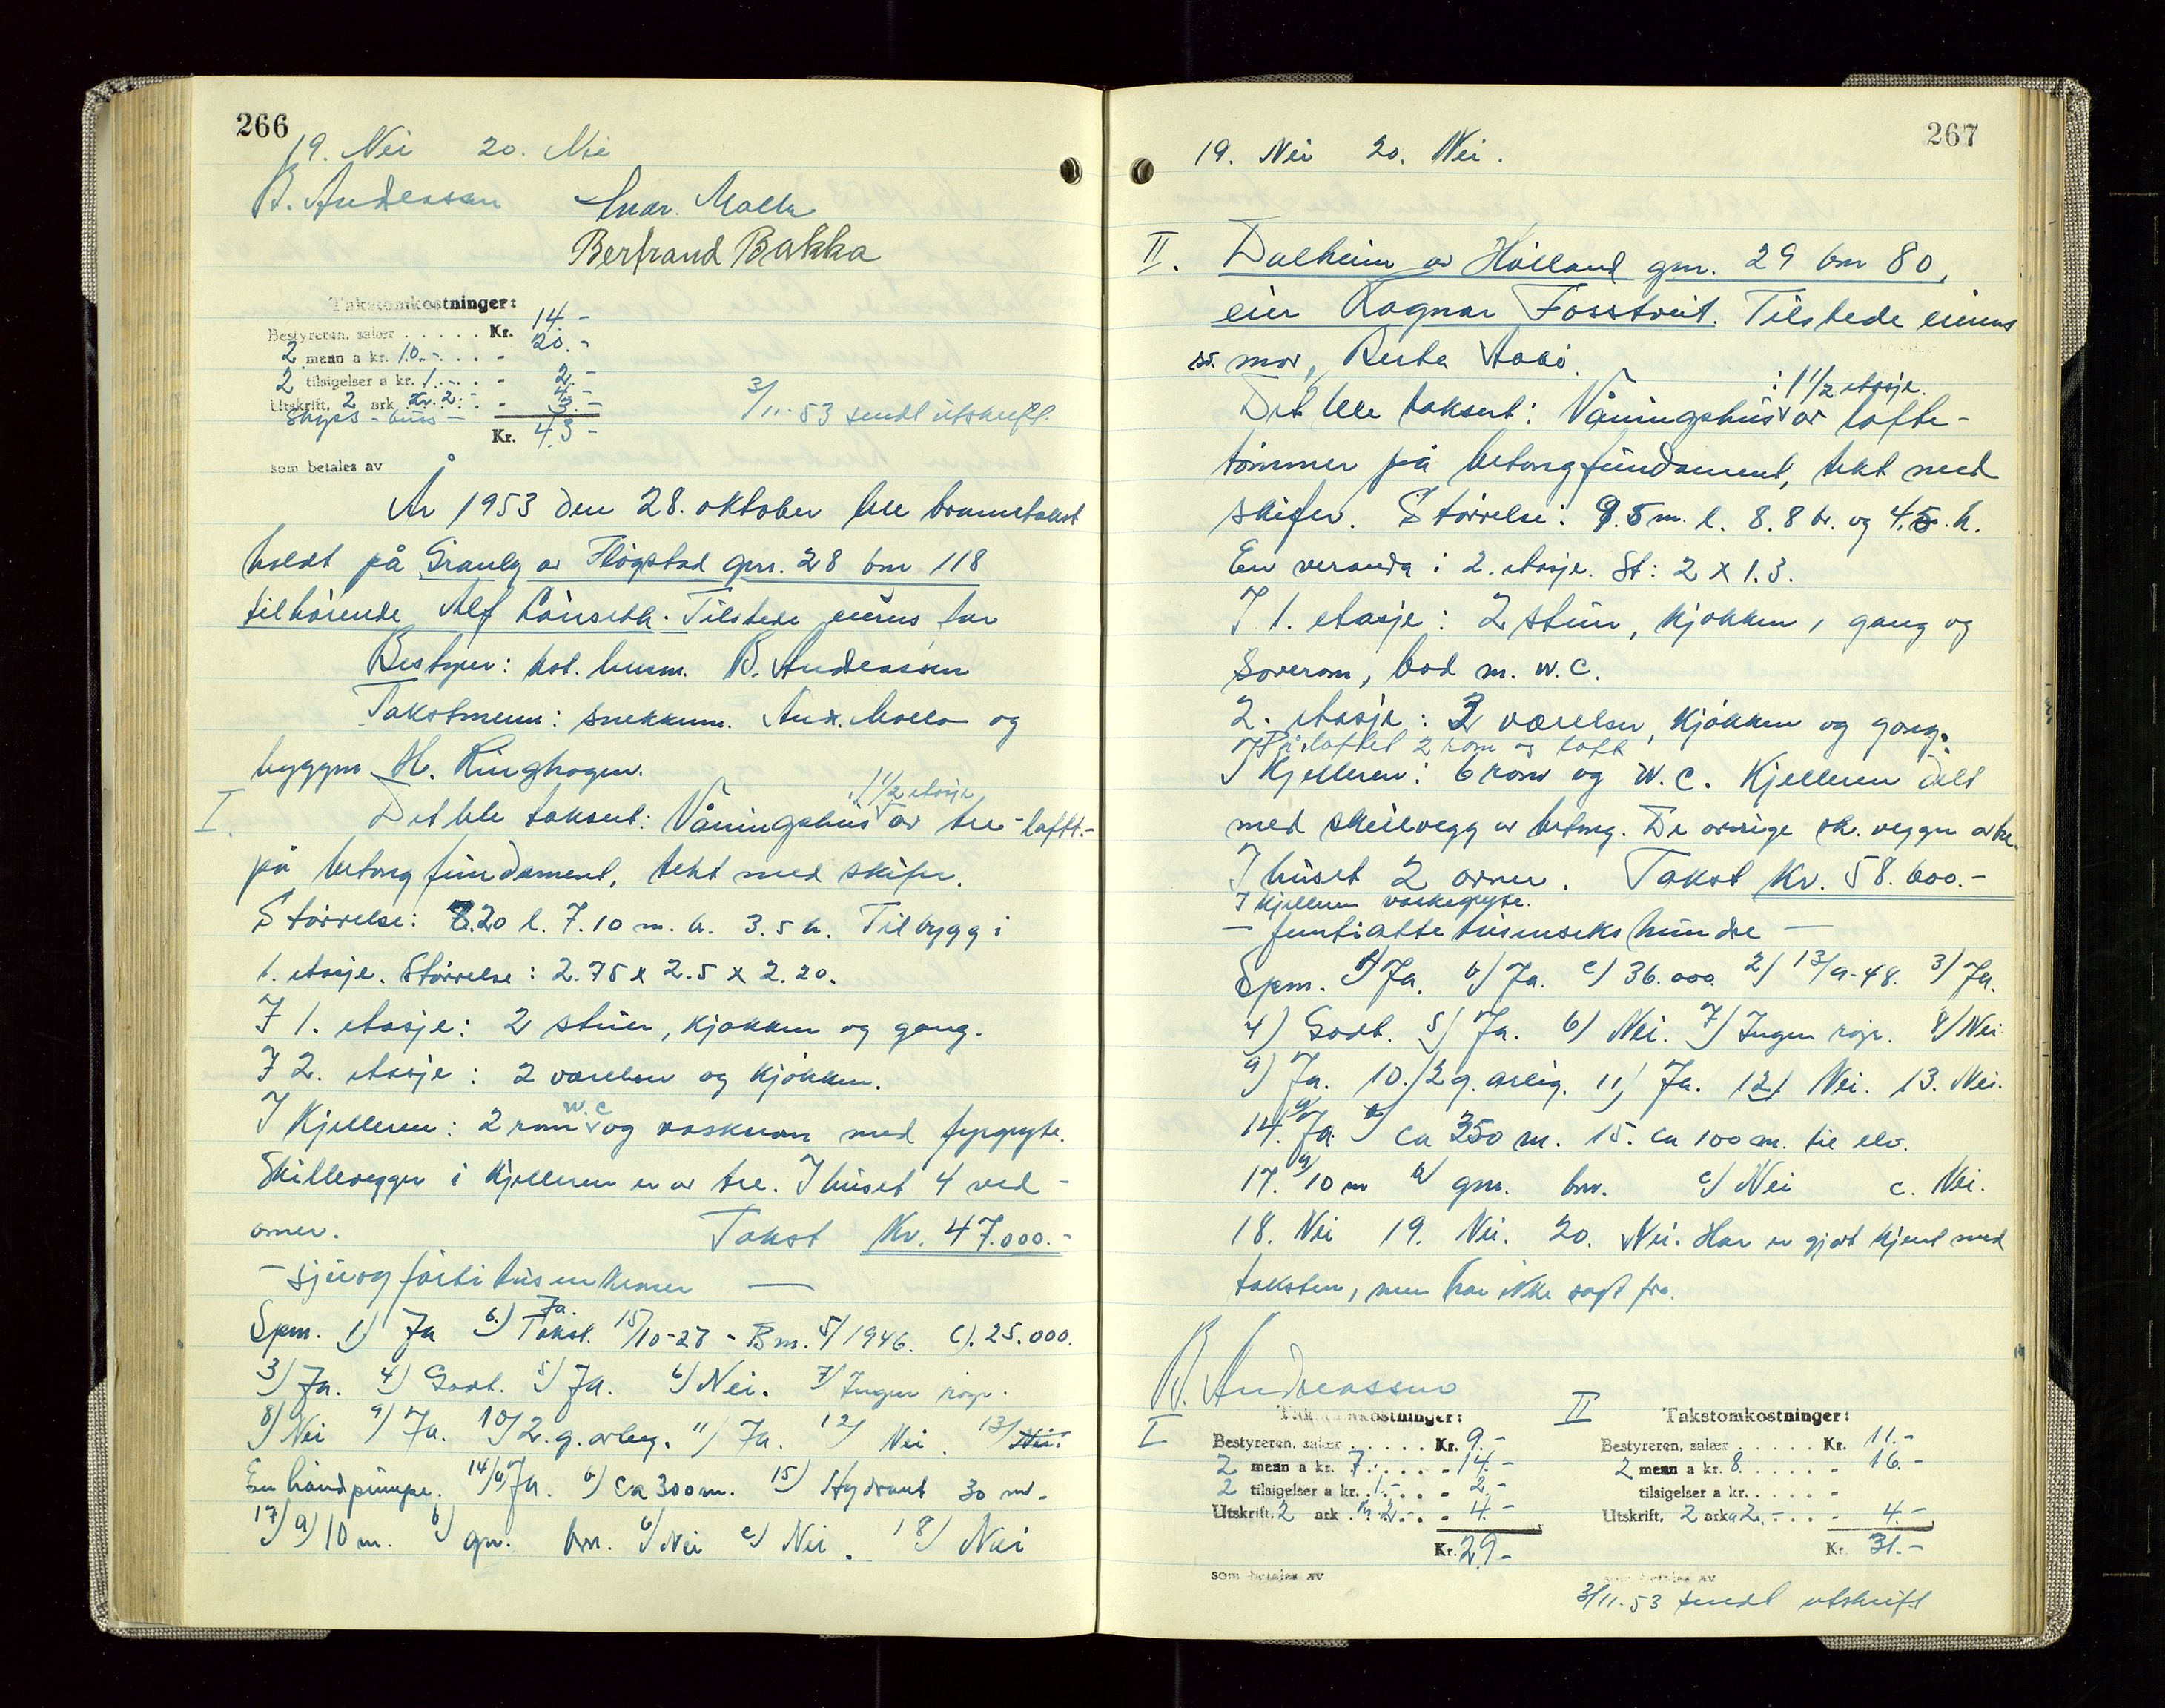 266
19. Nei 20. Nei
B. Andreassen Andr. Mollo
Bertrand Bakka
Takstomkostninger:
Bestyreren, salær ..... Kr. 14.-
2 menn a kr. 10.- ... - 20.-
2 tilsigelser a kr. 1.- ... - 2.-
Utskrift, 2 ark kr. 2.- ... - 4.-
Skyss - buss - 3.-
Kr. 43-
3/11-53 sendt utskrift.
som betales av
År 1953 den 28. oktober ble branntakst
holdt på Granly av Fløgstad gnr. 28 bnr 118
tilhørende Alf Lönseth. Tilstede eierens far
Bestyrer: kst. lensm. B. Andreassen
Takstmenn: snekkerm. Andr. Mollo og
byggm H. Ringhagen.
I. Det ble taksert: Våningshus i 1 1/2 etasje av tre-laft.-
på betongfundament, tekt med skifer.
Størrelse: 8.20 l. 7.10 m. b. 3.5 h. Tilbygg i
1. etasje. Størrelse: 2.75 x 2.5 x 2.20.
I 1. etasje: 2 stuer, kjøkken og gang.
I 2. etasje: 2 værelser og kjøkken.
I Kjelleren: 2 rom w.c og vaskerom med fyrgryte.
Skillevegger i kjelleren er av tre. I huset 4 ved-
ovner. Takst Kr. 47.000.-
- sjuogførtitusenkroner -
Spm. 1) Ja b.) Ja. Takst. 15/10-27 - Bm. 5/1946. C). 25.000.
3) Ja. 4) Godt. 5) Ja. 6) Nei. 7) Ingen
8) Nei 9) Ja. 10) 2. g. årleg. 11) Ja. 12) Nei. 13) Nei.
En håndpumpe. 14/a) Ja. b) Ca 300 m. 15) Hydrant 30 m.
17) a) 10 m. b) gnr. bnr. c) Nei e) Nei. 18) Nei
267
19. Nei 20. Nei.
II. Dalheim av Håland gnr. 29 bnr 80,
eier Ragnar Fosstveit. Tilstede eierens
st. mor, Berta Aabø.
Det ble taksert: Våningshus i 1 1/2 etasje av lafte-
tømmer på betongfundament, tekt med
skifer. Størrelse: 9.5 m. l. 8.8 br. og 4.5 h.
En veranda i 2. etasje. St: 2 x 1.3.
I 1. etasje: 2 stuer, kjøkken, gang og
Soverom, bad m. w.c.
2. etasje: 3 værelser, kjøkken og gang.
På loftet 2 rom og loft
I Kjelleren: 6 rom og W.C. Kjelleren delt
med skillevegg av betong. De øvrige sk. vegger av tre.
I huset 2 ovner. Takst Kr. 58.600.-
I kjelleren vaskegryte.
- femtiåttetusenseks hundre -
Spm. 1) Ja. b) Ja. c) 36.000. 2) 13/9-48. 3) Ja.
4) Godt. 5) Ja. 6) Nei. 7) Ingen 8) Nei
9) Ja. 10.) 2 g. årlig. 11) Ja. 12) Nei. 13. Nei.
14. a) Ja. b) Ca 350 m. 15. Ca 100 m. til elv.
17. a) 10 m b) gnr. bnr. c) Nei c. Nei.
18. Nei 19. Nei. 20. Nei. Har er gjort kjent med
taksten, men har ikke sagt fra.
B. Andreassen
I Takstomkostninger:
Bestyreren, salær ..... Kr. 9.-
2 menn a kr. 7.- ... - 14.-
2 tilsigelser a kr. 1.- ... - 2.-
Utskrift, 2 ark kr 2.- ... - 4.-
Kr. 29.-
som betales av
II Takstomkostninger:
Bestyreren, salær ..... Kr. 11.-
2 menn a kr. 8. .... - 16.-
tilsigelser a kr. .... -
Utskrift, 2 ark a 2.- ... - 4.-
Kr. 31.-
som betales av
3/11-53 sendt utskrift